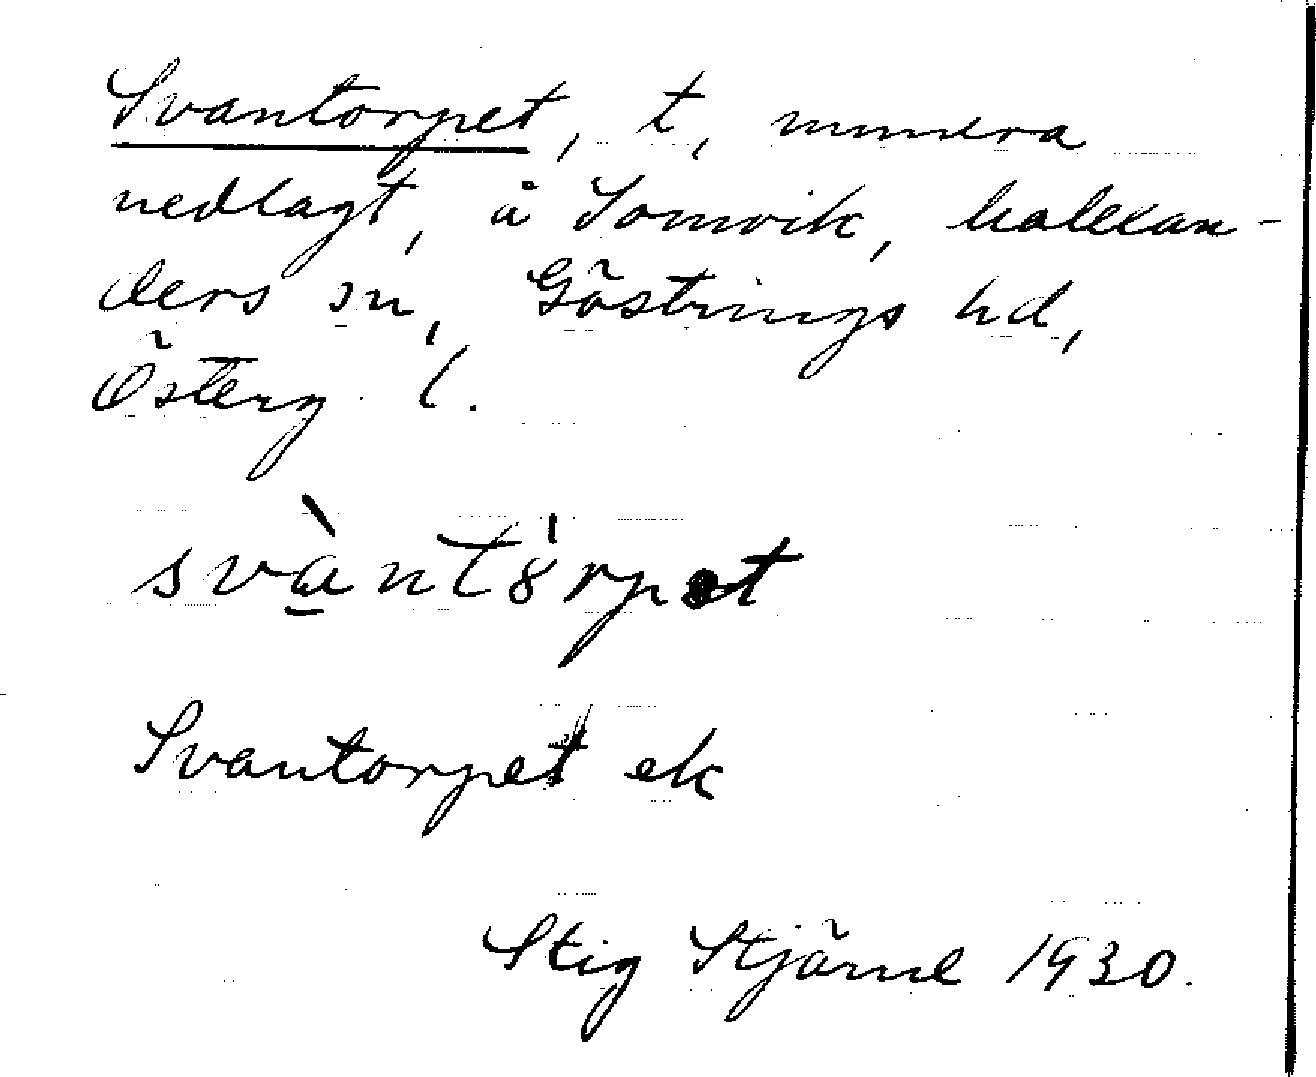 Svantorpet, t, numera
nedlagt, å Somvik, Malexan-
ders sn, Göstrings hd,
Österg l.
svàntö́rpet
Svantorpet ek
Stig Stjärne 1930.